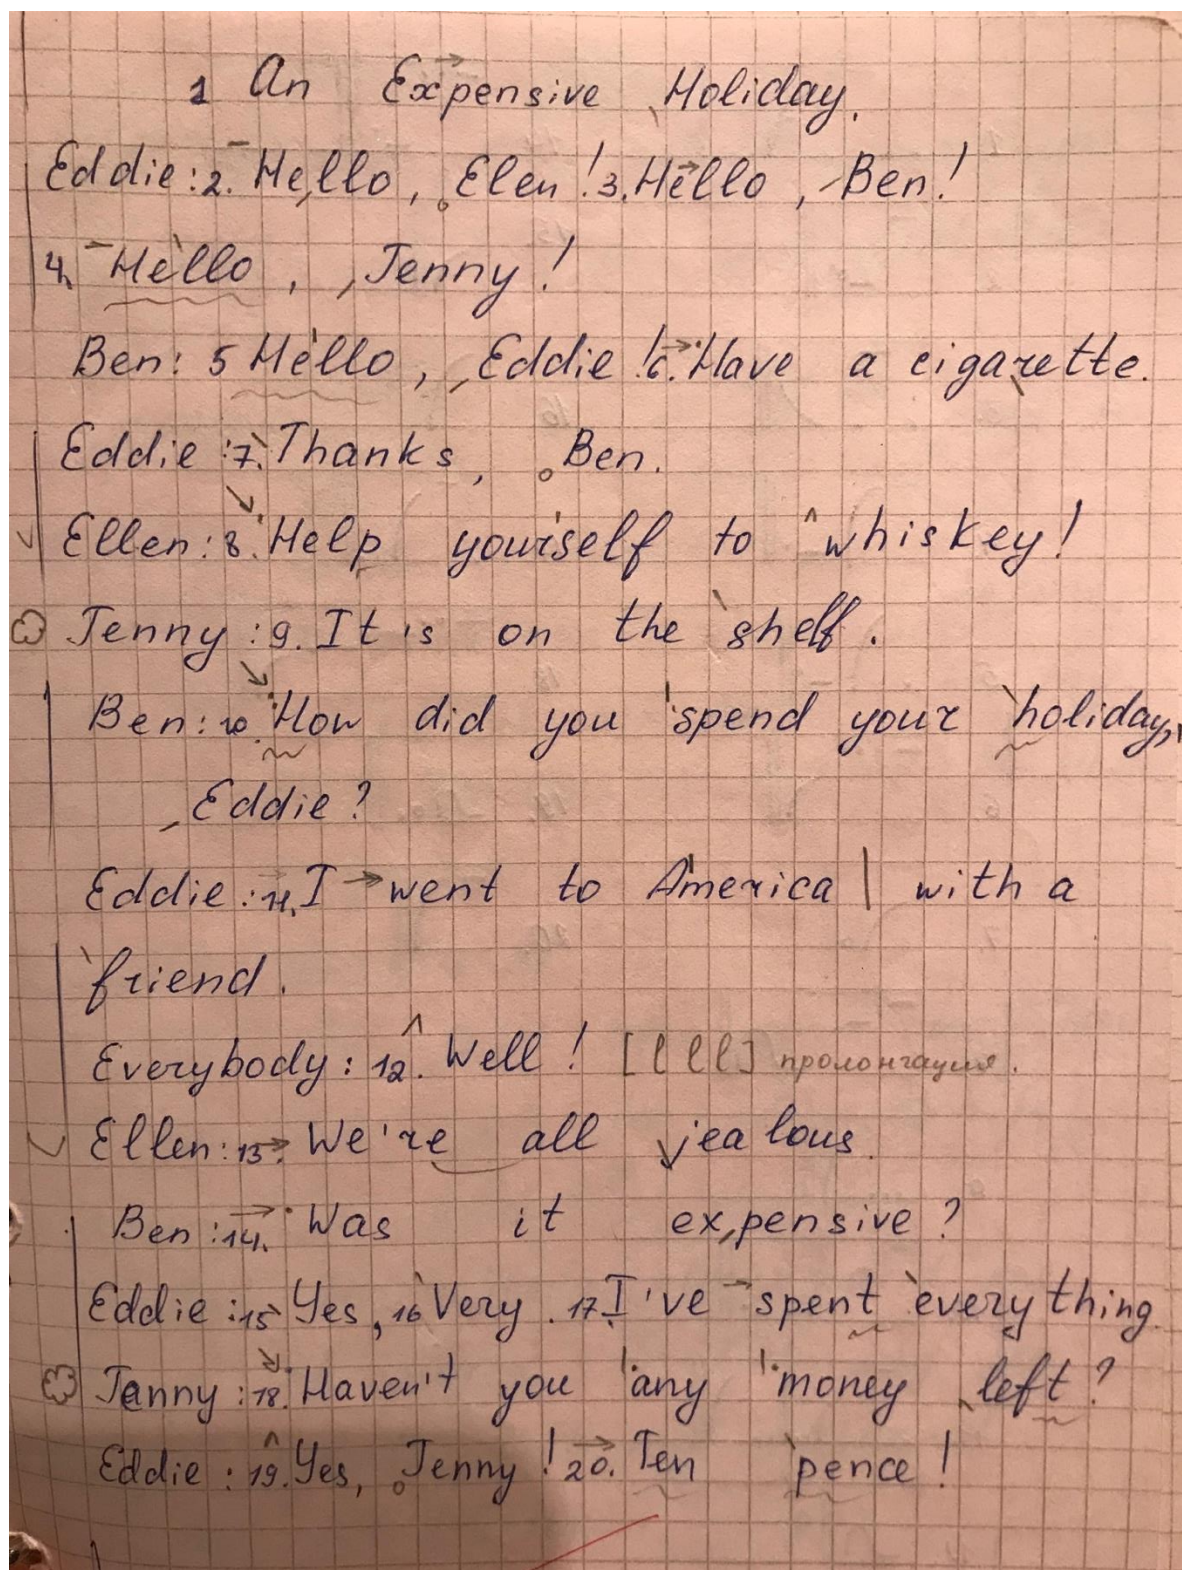 1 An Expensive Holiday.
Eddie: 2. Hello, Elen! 3. Hello, Ben!
4. Hello, Jenny!
Ben: 5 Hello, Eddie! 6. Have a cigarette.
Eddie: 7. Thanks, Ben.
Ellen: 8. Help yourself to whiskey!
Jenny: 9. It is on the shelf.
Ben: 10. How did you spend your holiday,
Eddie?
Eddie: 11. I went to America | with a
friend.
Everybody: 12. Well! [lll] пролонгация.
Ellen: 13. We're all jealous.
Ben: 14. Was it expensive?
Eddie: 15 Yes, 16 Very. 17. I've spent everything.
Jenny: 18. Haven't you any money left?
Eddie: 19. Yes, Jenny! 20. Ten pence!